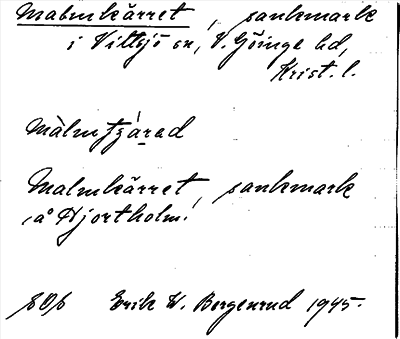 Malmkärret, sankmark
i Vittsjö sn, V. Göinge hd,
Krist. l.
Malmkärret, sankmark
å Hjortholm.
Erik W. Bergenrud 1945.